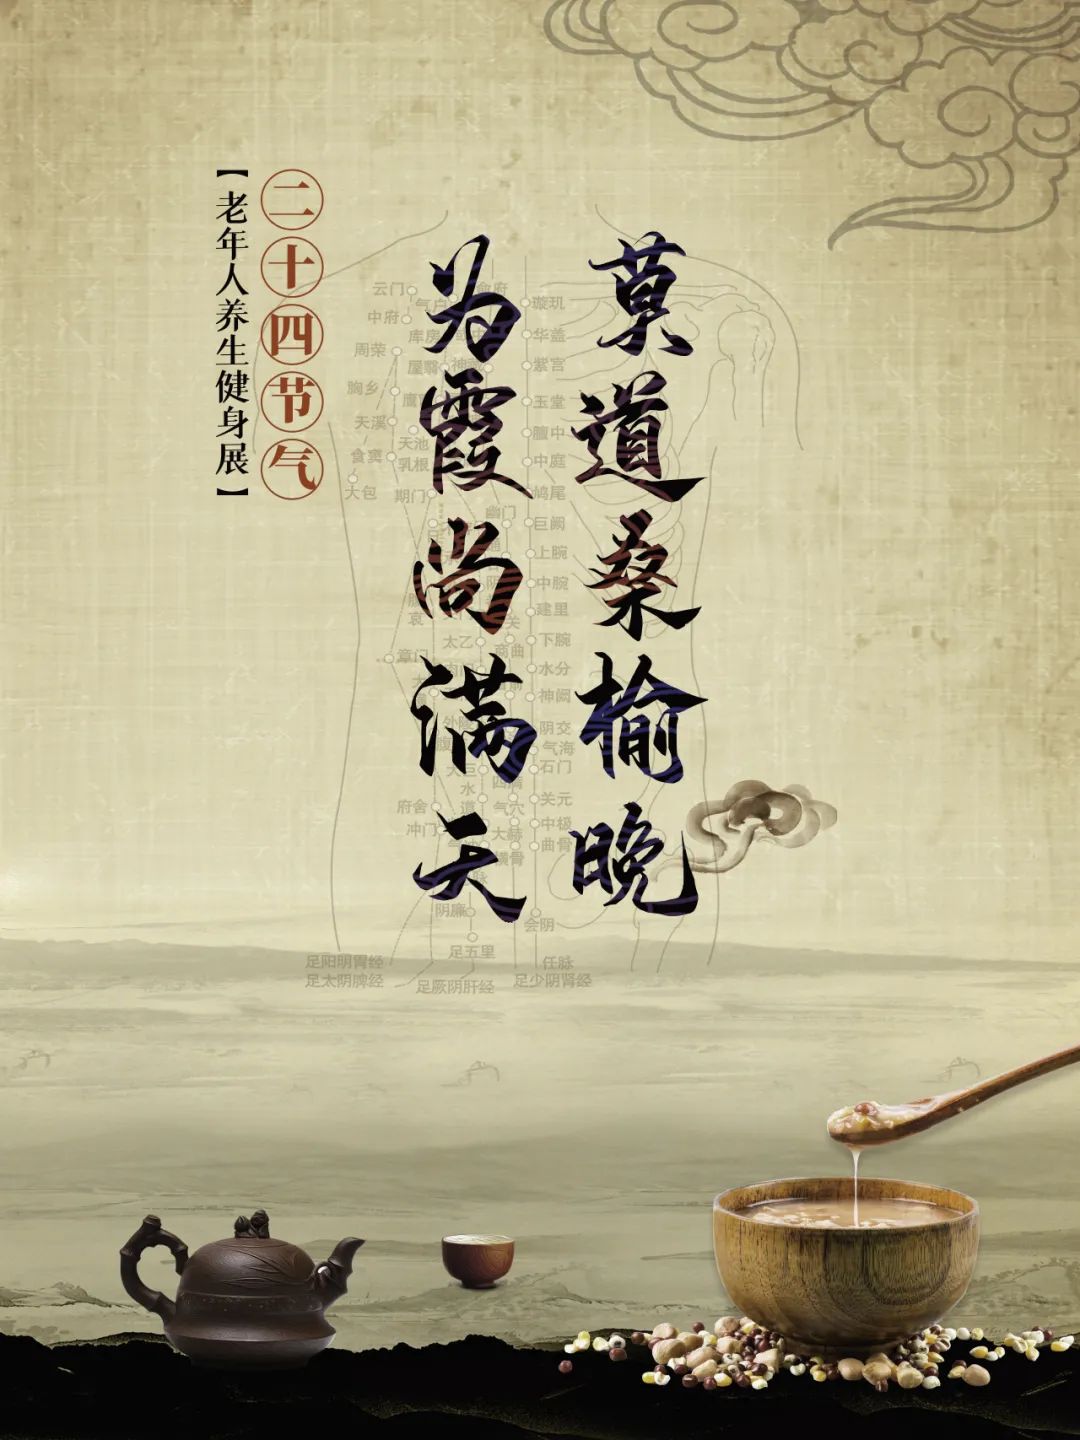 莫道桑榆晚
为霞尚满天
二十四节气
【老年人养生健身展】
云门
气户
俞府
璇玑
中府
库房
华盖
周荣
屋翳
紫宫
胸乡
玉堂
天溪
天池
膻中
食窦
乳根
中庭
大包
期门
鸠尾
幽门
巨阙
上腕
中腕
建里
太乙
商曲
下腕
章门
水分
神阙
阴交
气海
石门
府舍
水道
气穴
关元
冲门
大赫
中极
横骨
曲骨
阴廉
会阴
足五里
足阳明胃经
任脉
足太阴脾经
足厥阴肝经
足少阴肾经